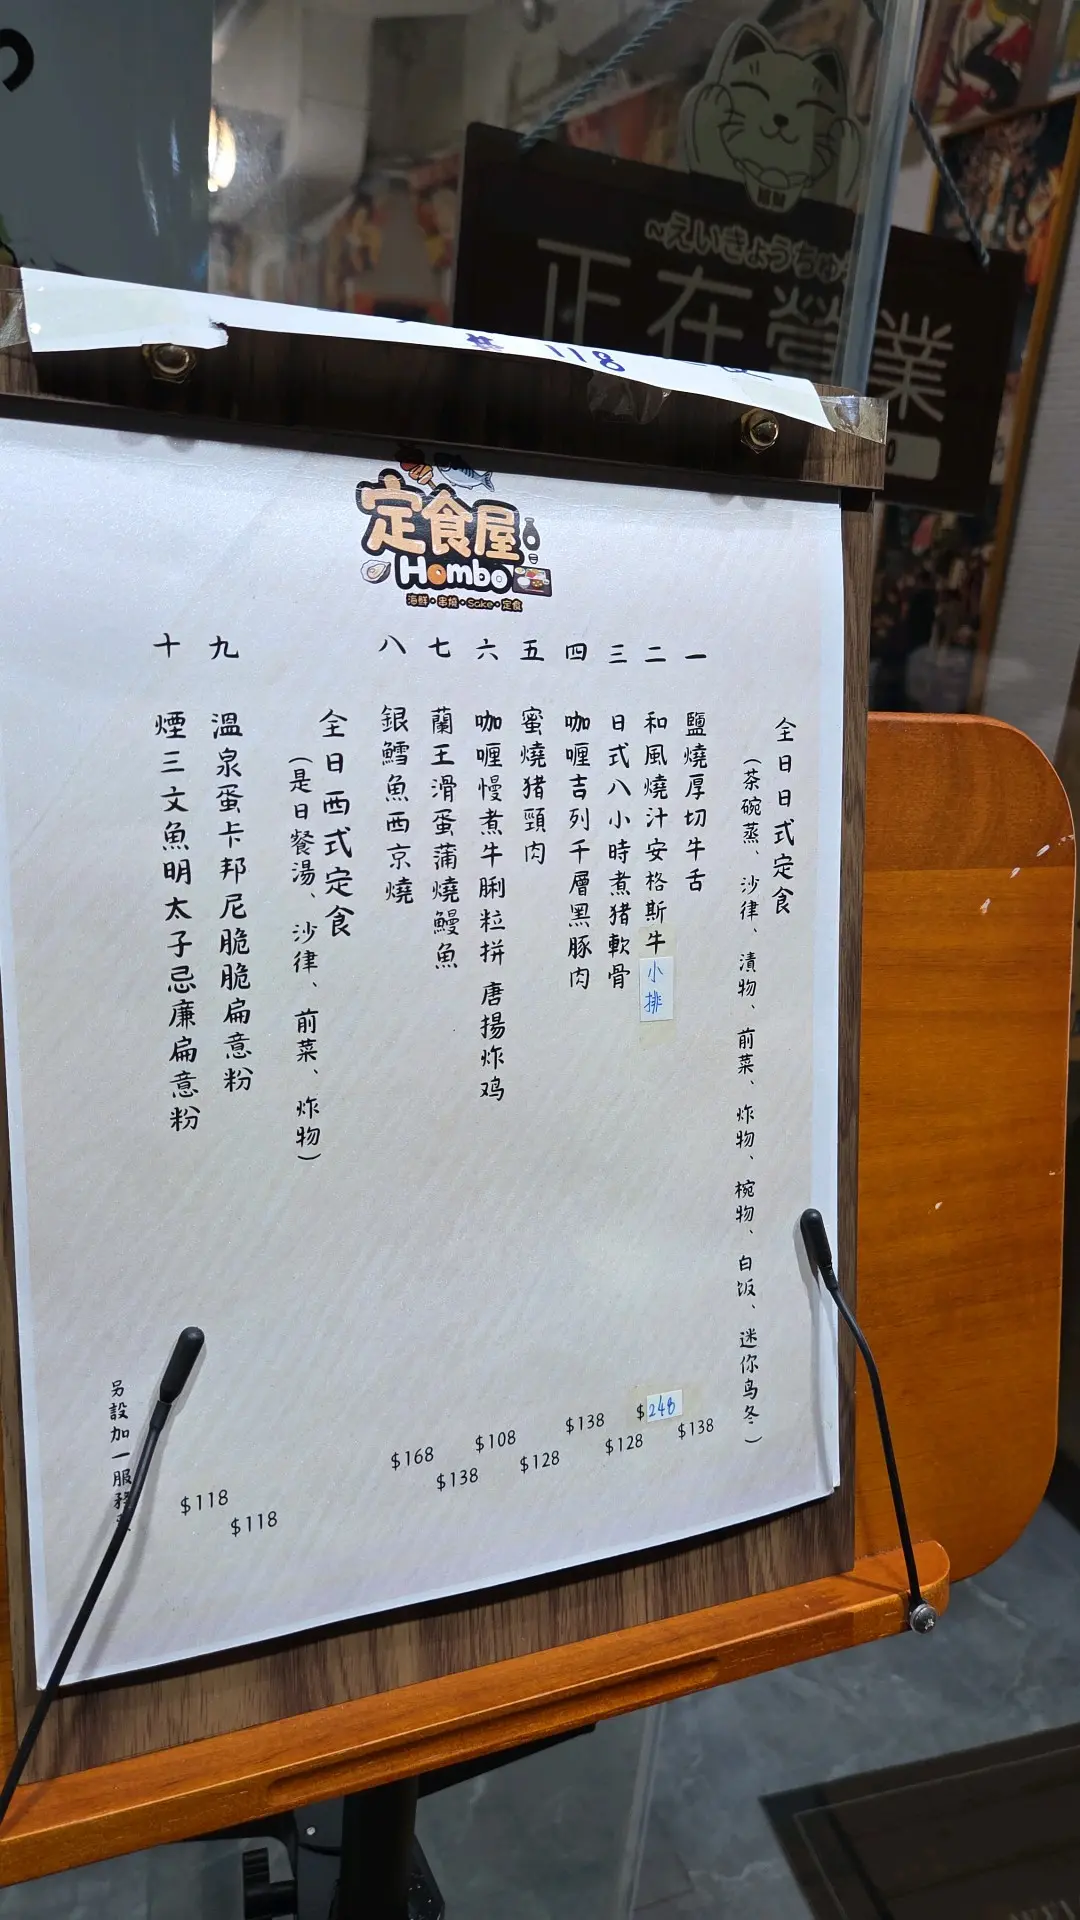 ~えいきょうちゅう
正在營業
$118
定食屋
Hombo
海鮮・串燒・Sake・定食
全日日式定食
(茶碗蒸、沙律、漬物、前菜、炸物、椀物、白饭、迷你鸟冬)
一 鹽燒厚切牛舌 $138
二 和風燒汁安格斯牛小排 $248
三 日式八小時煮猪軟骨 $128
四 咖喱吉列千層黑豚肉 $138
五 蜜燒猪頸肉 $128
六 咖喱慢煮牛脷粒拼 唐揚炸鸡 $108
七 蘭王滑蛋蒲燒鰻魚 $138
八 銀鱈魚西京燒 $168
全日西式定食
(是日餐湯、沙律、前菜、炸物)
九 溫泉蛋卡邦尼脆脆扁意粉 $118
十 煙三文魚明太子忌廉扁意粉 $118
另設加一服務